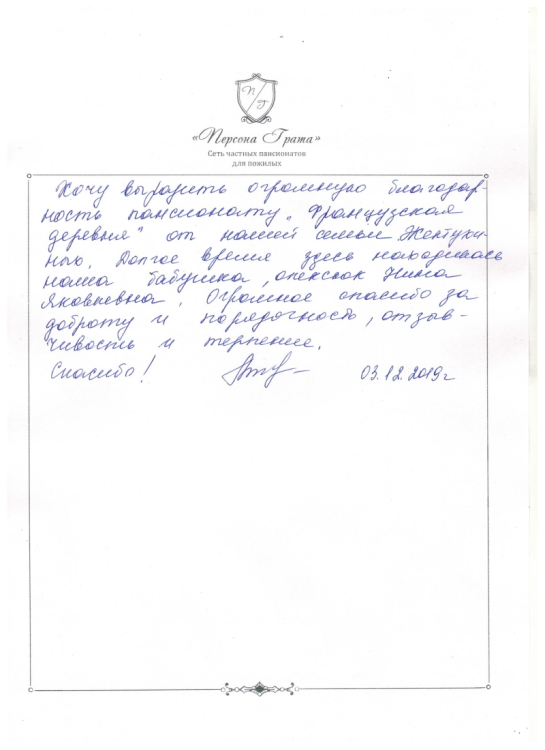 П Г
«Персона Грата»
Сеть частных пансионатов
для пожилых
Хочу выразить огромную благодар-
ность пансионату „Французская
деревня" от нашей семьи
Долгое время здесь находилась
наша бабушка, Нина
Яковлевна. Огромное спасибо за
доброту и порядочность, отзыв-
чивость и терпение.
Спасибо!
03.12.2019г